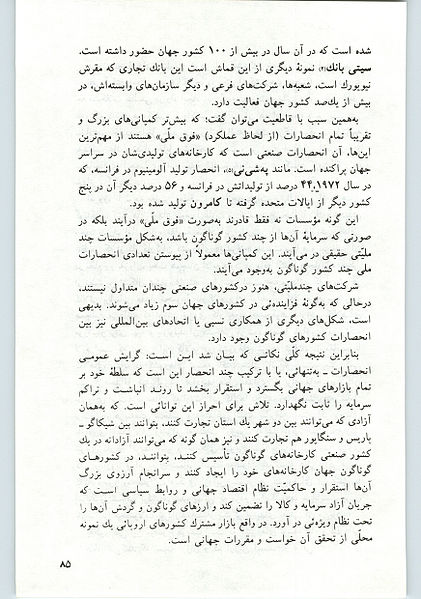 شده است که در آن سال در بیش از ۱۰۰ کشور جهان حضور داشته است.
سیتی بانك(۴) نمونهٔ دیگری از این قماش است این بانك تجاری که مقرش
نیویورك است، شعبه‌ها، شرکت‌های فرعی و دیگر سازمان‌های وابسته‌اش، در
بیش از یك‌صد کشور جهان فعالیت دارد.
به‌همین سبب با قاطعیت می‌توان گفت؛ که بیش‌تر کمپانی‌های بزرگ و
تقریباً تمام انحصارات (از لحاظ عملکرد) «فوق ملّی» هستند از مهم‌ترین
این‌ها، آن انحصارات صنعتی است که کارخانه‌های تولیدی‌شان در سراسر
جهان پراکنده است. مانند په‌شی‌نی(۵)، انحصار تولید آلومینیوم در فرانسه، که
در سال ۱۹۷۲ـ۴۴ درصد از تولیداتش در فرانسه و ۵۶ درصد دیگر آن در پنج
کشور دیگر از ایالات متحده گرفته تا کامرون تولید شده بود.
این گونه مؤسسات نه فقط قادرند به‌صورت «فوق ملّی» درآیند بلکه در
صورتی که سرمایهٔ آن‌ها از چند کشور گوناگون باشد، به‌شکل مؤسسات چند
ملیّتی حقیقی در می‌آیند. این کمپانی‌ها معمولاً از پیوستن تعدادی انحصارات
ملی چند کشور گوناگون به‌وجود می‌آیند.
شرکت‌های چندملیّتی، هنوز درکشورهای صنعتی چندان متداول نیستند،
درحالی که به‌گونهٔ فزاینده‌ئی در کشورهای جهان سوم زیاد می‌شوند. بدیهی
است، شکل‌های دیگری از همکاری نسبی یا اتحادهای بین‌المللی نیز بین
انحصارات کشورهای گوناگون وجود دارد.
بنابراین نتیجه کلّی نکاتـی که بیـان شد ایـن اسـت: گرایش عمومـی
انحصارات ـ به‌تنهائی، یا با ترکیب چند انحصار این است که سلطهٔ خود بر
تمام بازارهای جهانی بگسترد و استقرار بخشد تا رونـد انباشـت و تراکم
سرمایه را ثابت نگهدارد. تلاش برای احراز این توانائی است. که به‌همان
آزادی که می‌توانند بین دو شهر یك استان تجارت کنند، بتوانند بین شیکاگو ـ
پاریس و سنگاپور هم تجارت کنند و نیز همان گونه که می‌توانند آزادانه در یك
کشور صنعتی کارخانه‌های گوناگون تأسیس کنند، بتواننـد، در کشورهـای
گوناگون جهان کارخانه‌های خود را ایجاد کنند و سرانجام آرزوی بزرگ
آن‌ها استقرار و حاکمیّت نظام اقتصاد جهانی و روابط سیاسی اسـت که
جریان آزاد سرمایه و کالا را تضمین کند و ارزهای گوناگون و گردش آن‌ها را
تحت نظام ویژه‌ئی در آورد. در واقع بازار مشترك کشورهای اروپائی یك نمونه
محلّی از تحقق آن خواست و مقررات جهانی است.
۸۵